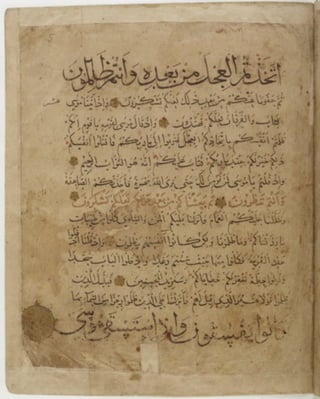 اتخذتم العجل من بعده وانتم ظالمون
ثم عفونا عنكم من بعد ذلك لعلكم تشكرون واذ اتينا موسى
الكتاب والفرقان لعلكم تهتدون واذ قال موسى لقومه يا قوم انكم
ظلمتم انفسكم باتخاذكم العجل فتوبوا الى بارئكم فاقتلوا انفسكم
ذلكم خير لكم عند بارئكم فتاب عليكم انه هو التواب الرحيم
واذ قلتم يا موسى لن نؤمن لك حتى نرى الله جهرة فاخذتكم الصاعقة
وانتم تنظرون ثم بعثناكم من بعد موتكم لعلكم تشكرون
وظللنا عليكم الغمام وانزلنا عليكم المن والسلوى كلوا من طيبات
ما رزقناكم وما ظلمونا ولكن كانوا انفسهم يظلمون واذ قلنا ادخلوا
هذه القرية فكلوا منها حيث شئتم رغدا وادخلوا الباب سجدا
وقولوا حطة نغفر لكم خطاياكم وسنزيد المحسنين فبدل الذين
ظلموا قولا غير الذي قيل لهم فانزلنا على الذين ظلموا رجزا من السماء بما
كانوا يفسقون واذ استسقى موسى